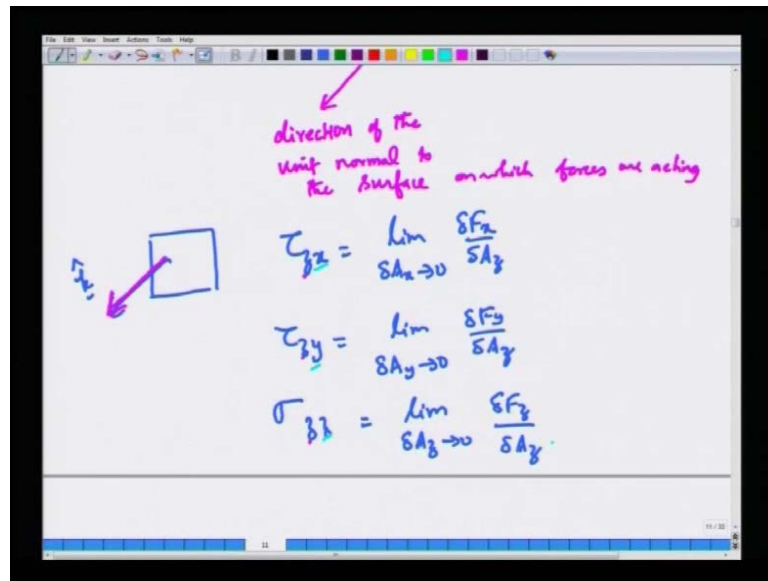 File Edit View Insert Actions Tools Help
direction of the
unit normal to
the surface on which forces are acting
k̂
τ_zx = lim_{δA_x→0} δF_x/δA_z
τ_zy = lim_{δA_y→0} δF_y/δA_z
σ_zz = lim_{δA_z→0} δF_z/δA_z
11 / 33
11